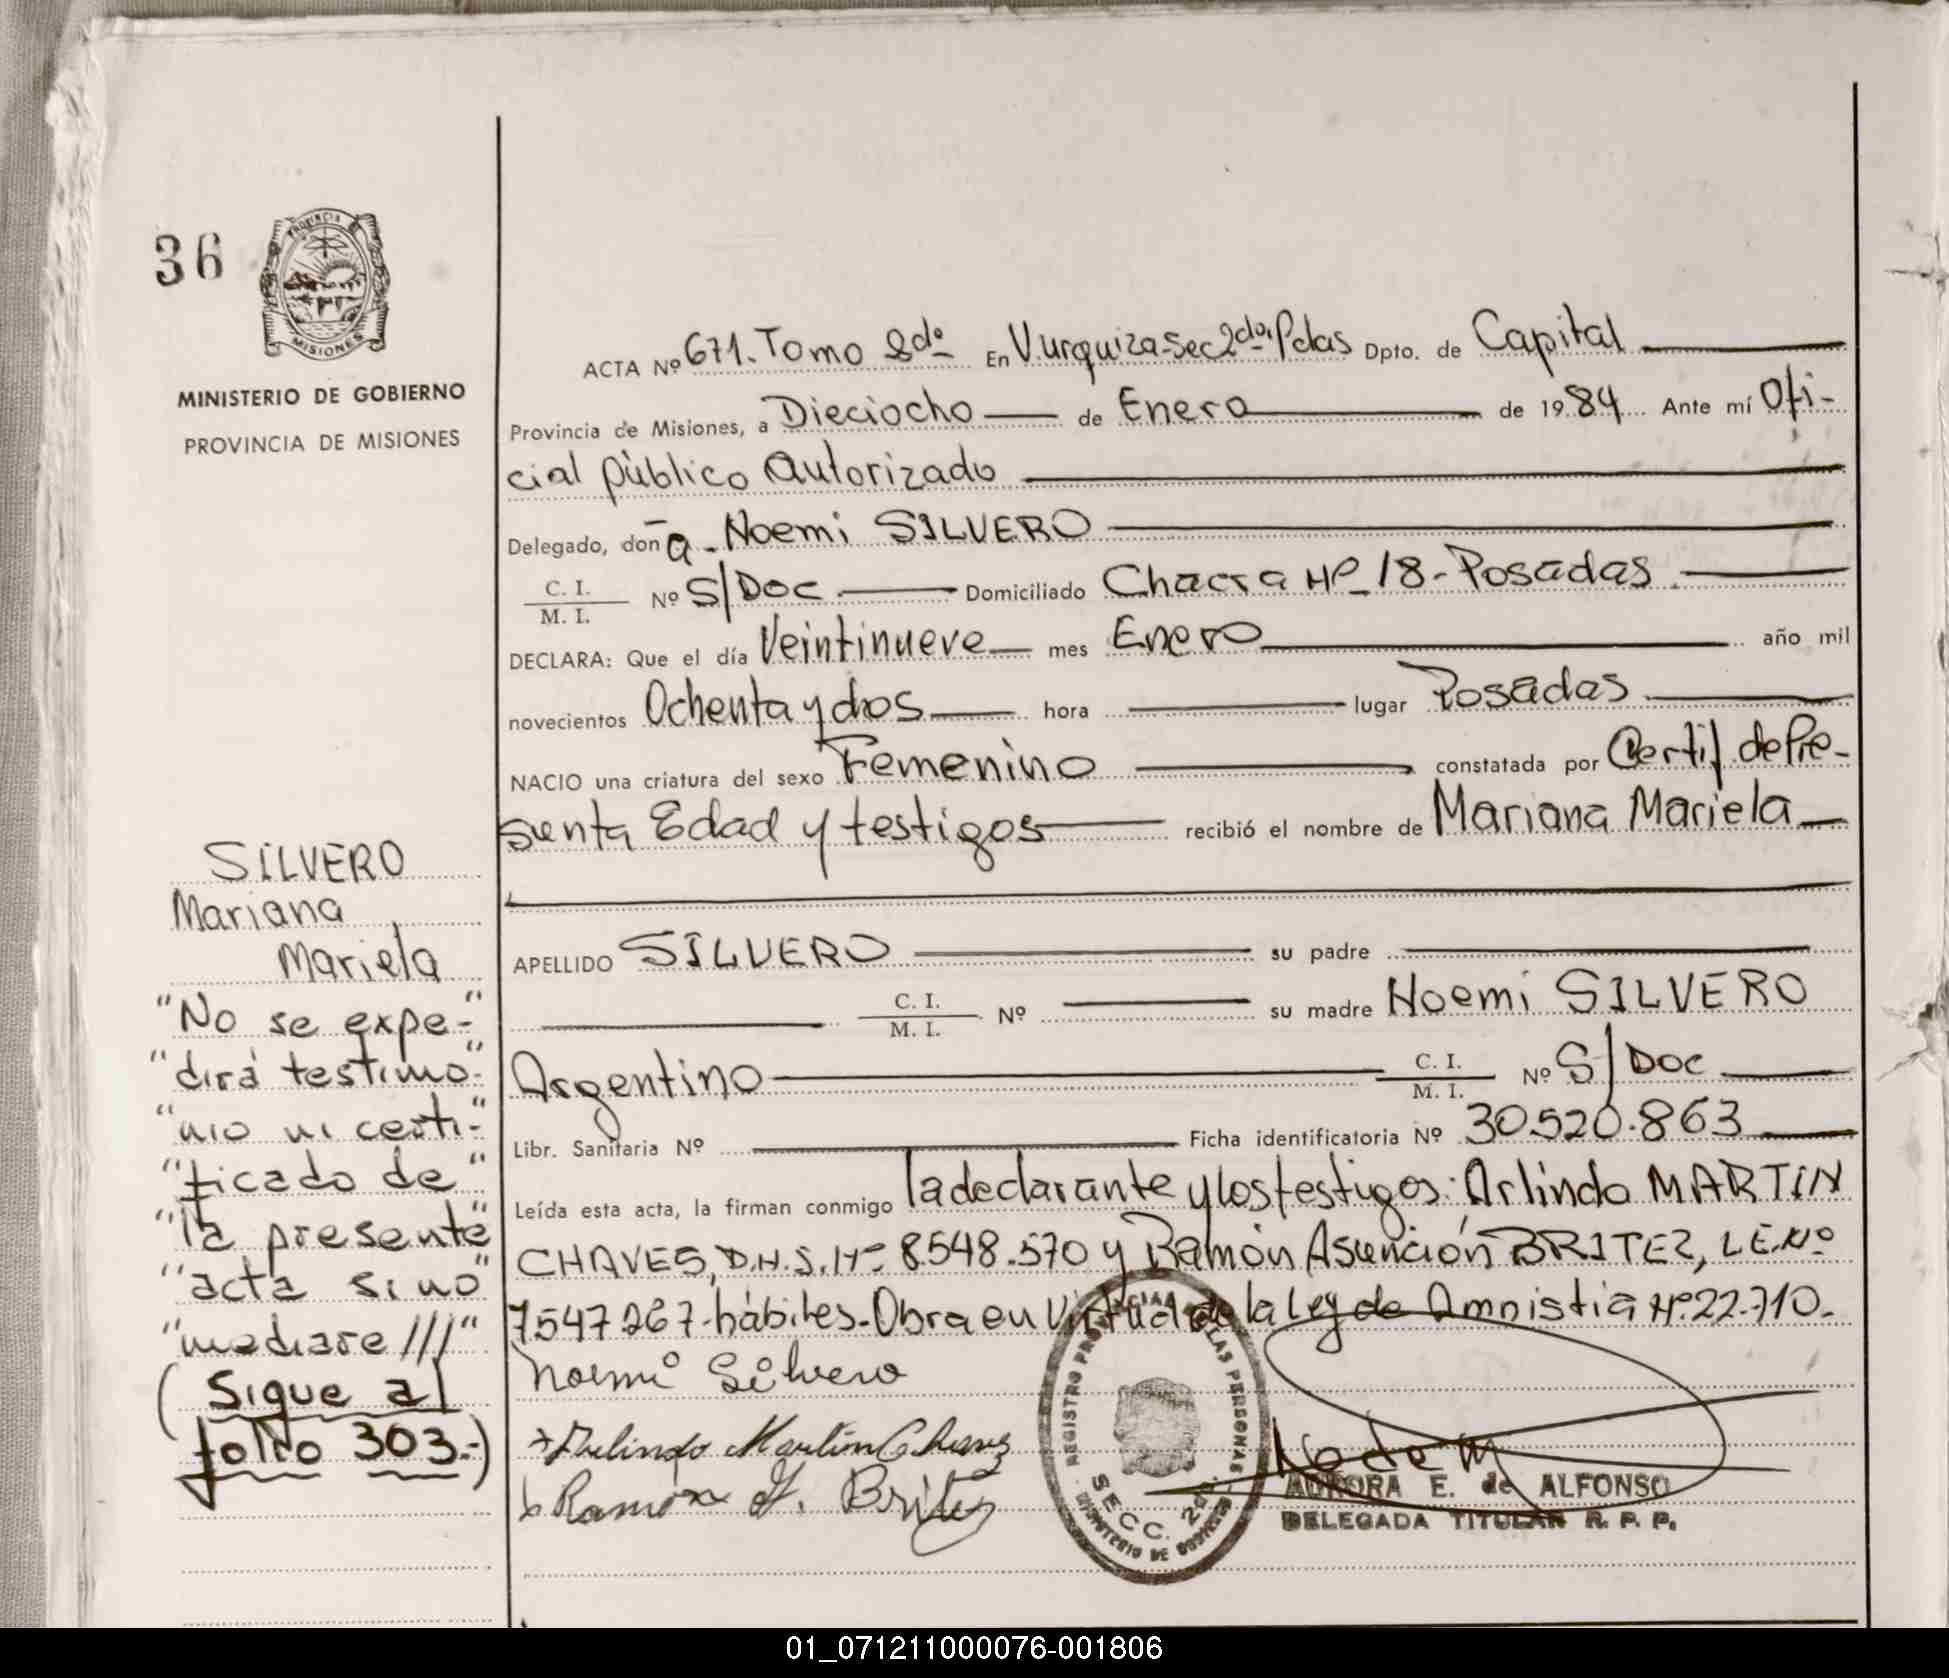 36
PROVINCIA
MISIONES
MINISTERIO DE GOBIERNO
PROVINCIA DE MISIONES
SILVERO
Mariana
Mariela
"No se expe-"
"dirá testimo-"
"nio ni certi-"
"ficado de"
"la presente"
"acta si no"
"mediare ///"
(Sigue al
folio 303.-)
ACTA Nº 671. Tomo 2do En V. urquiza-Sec 2da. Pdas Dpto. de Capital
Provincia de Misiones, a Dieciocho de Enero de 1984 Ante mí Ofi-
cial pùblico Autorizado
Delegado, doña. Noemi SILVERO
C. I.
M. I. Nº S/Doc Domiciliado Chacra Nº 18-Posadas
DECLARA: Que el día Veintinueve mes Enero año mil
novecientos Ochenta y dos hora lugar Posadas
NACIO una criatura del sexo Femenino constatada por Certif. de Pre-
sunta Edad y testigos recibió el nombre de Mariana Mariela
APELLIDO SILVERO su padre
C. I.
M. I. Nº su madre Noemi SILVERO
Argentino C. I.
M. I. Nº S/Doc
Libr. Sanitaria Nº Ficha identificatoria Nº 30.520.863
Leída esta acta, la firman conmigo la declarante y los testigos: Arlindo MARTIN
CHAVES, D.N.I. Nº 8.548.570 y Ramón Asunción BRITEZ, L.E. Nº
7.547.267-hábiles-Obra en Virtud de la Ley de Amnistia Nº 22.710.
Noemi Silvero
Arlindo Martin Chavez
Ramon A. Britez
REGISTRO PROVINCIAL DE LAS PERSONAS
SECC. 2da.
MINISTERIO DE GOBIERNO
AURORA E. de ALFONSO
DELEGADA TITULAR R. P. P.
01_071211000076-001806